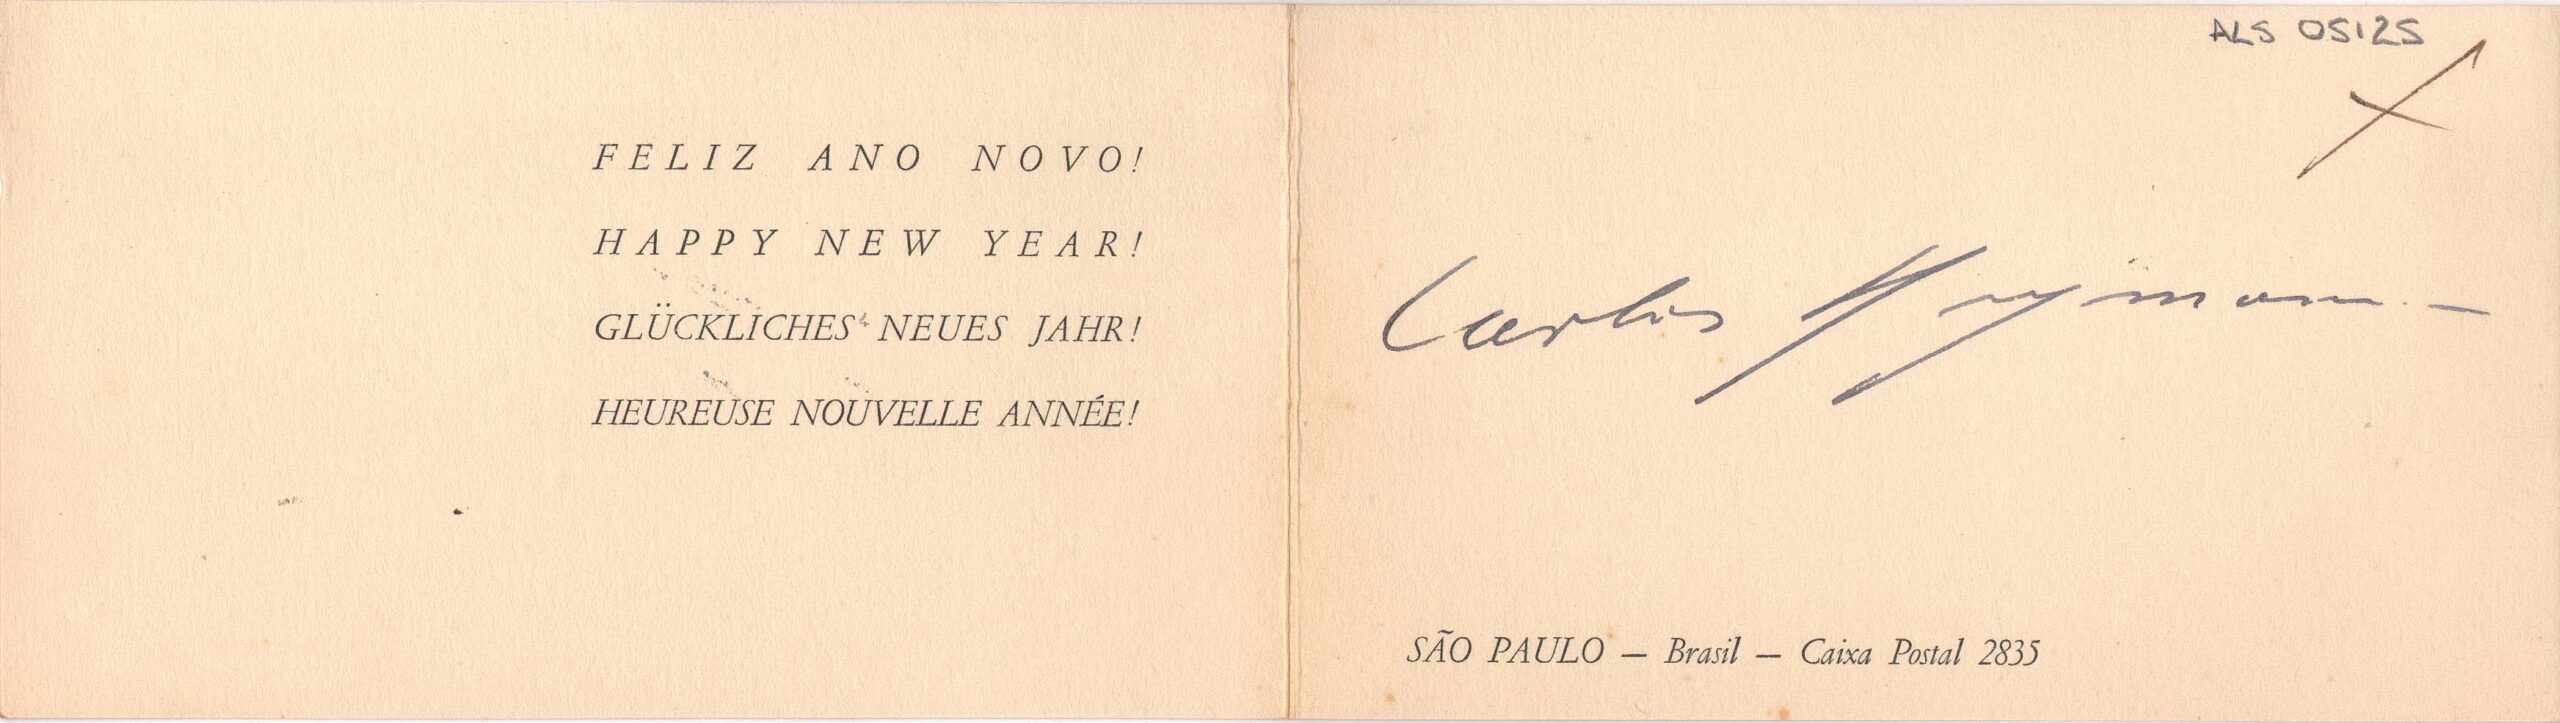 FELIZ ANO NOVO!
HAPPY NEW YEAR!
GLÜCKLICHES NEUES JAHR!
HEUREUSE NOUVELLE ANNÉE!
ALS 05125
Carlos
SÃO PAULO — Brasil — Caixa Postal 2835